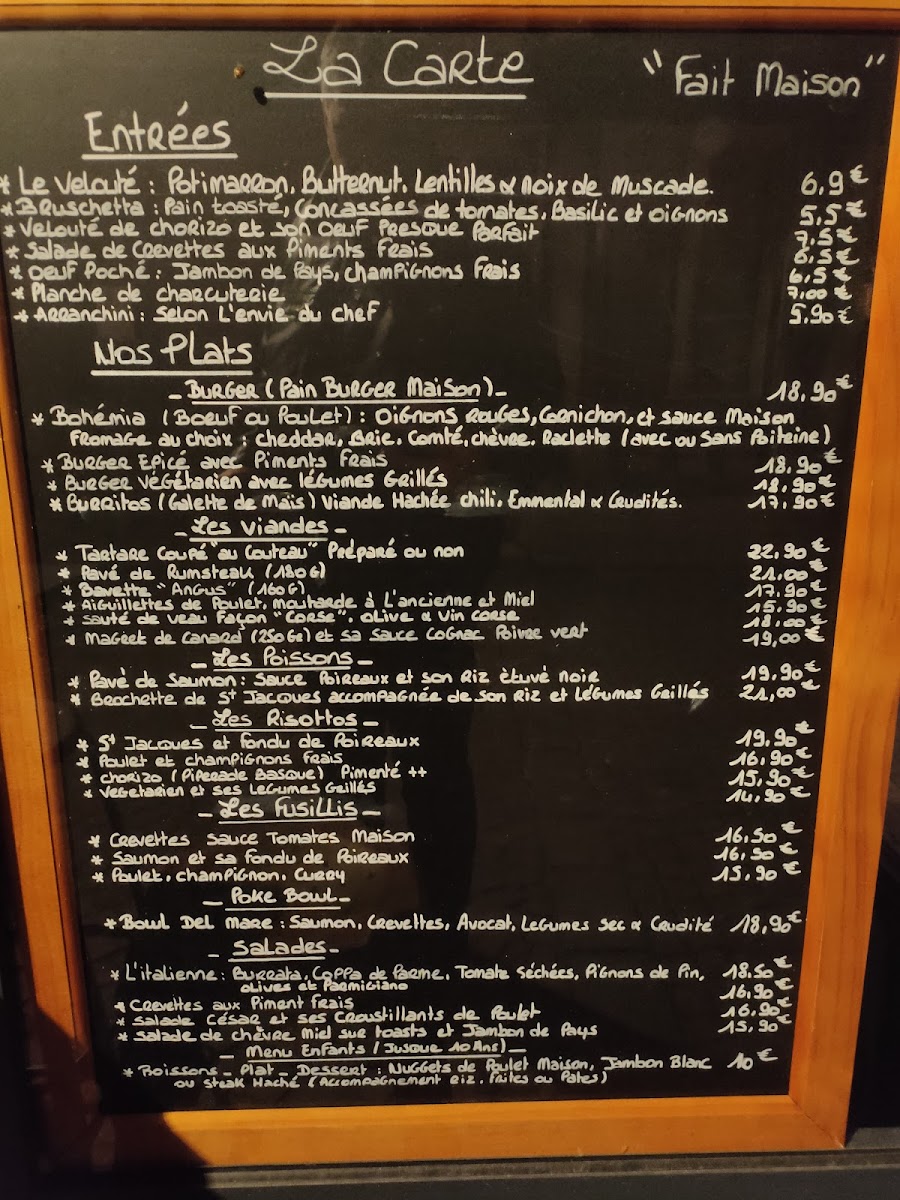 La Carte
"Fait Maison"
Entrées
* Le Velouté : Potimarron, Butternut, Lentilles & noix de Muscade. 6,9€
* Bruschetta : Pain toasté, Concassées de tomates, Basilic et oignons 5,5€
* Velouté de chorizo et son oeuf presque Parfait 7,5€
* Salade de Crevettes aux Piments Frais 6,5€
* Oeuf Poché : Jambon de Pays, champignons Frais 6,5€
* Planche de charcuterie 7,00€
* Arranchini : Selon L'envie du chef 5,90€
Nos Plats
- Burger (Pain Burger Maison) - 18,90€
* Bohémia (Boeuf ou Poulet) : Oignons rouges, Cornichon, et sauce Maison
Fromage au choix : cheddar, Brie, Comté, chèvre, Raclette (avec ou Sans Poiteine)
* Burger Epicé avec Piments Frais 18,90€
* Burger Végétarien avec légumes Grillés 18,90€
* Burritos (Galette de Maïs) Viande Hachée chili, Emmental & Crudités. 17,90€
- Les Viandes -
* Tartare Coupé "au Couteau" Préparé ou non 22,90€
* Pavé de Rumsteak (180G) 21,00€
* Bavette "Angus" (160G) 17,90€
* Aiguillettes de Poulet, moutarde à L'ancienne et Miel 15,90€
* Sauté de veau Façon "Corse", olive & Vin corse 18,00€
* Magret de Canard (250Gr) et sa Sauce Cognac Poivre vert 19,00€
- Les Poissons -
* Pavé de Saumon : Sauce Poireaux et son Riz Etuvé noir 19,90€
* Brochette de St Jacques accompagnée de son Riz et Légumes Grillés 21,00€
- Les Risottos -
* St Jacques et fondu de Poireaux 19,90€
* Poulet et champignons Frais 16,90€
* chorizo (Piperade Basque) Pimenté ++ 15,90€
* Vegetarien et ses Legumes Grillés 14,90€
- Les Fusillis -
* Crevettes Sauce Tomates Maison 16,50€
* Saumon et sa fondu de Poireaux 16,50€
* Poulet, champignon, Curry 15,90€
- Poke Bowl -
* Bowl Del Mare : Saumon, Crevettes, Avocat, Legumes Sec & Crudité 18,90€
- Salades -
* L'italienne : Burrata, Coppa de Parme, Tomate Séchées, Pignons de Pin, 18.50€
olives et Parmigiano
* Crevettes aux Piment Frais 16,90€
* Salade César et ses Croustillants de Poulet 16,90€
* Salade de chèvre Miel sur toasts et Jambon de Pays 15,90€
- Menu Enfants (Jusque 10 Ans) -
* Boissons - Plat - Dessert : Nuggets de Poulet Maison, Jambon Blanc 10€
ou Steak Haché (Accompagnement Riz, Frites ou Pates)